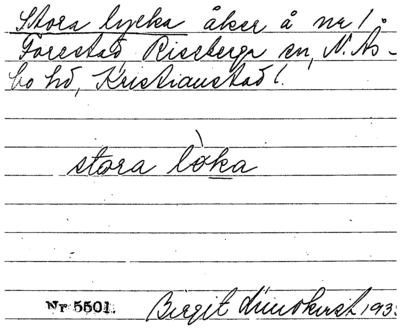 Stora lycka åker å nr 1
Forestad, Riseberga sn, N. Ås-
bo hd, Kristianstad l.
stora lòka
Nr 5501. Birgit Lindkvist 193